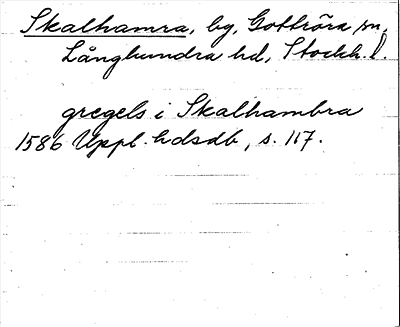 Skalhamra, by, Gottröra sn,
Långhundra hd, Stockh. l.
gregels i Skalhambra
1586 Uppl. hdsdb, s. 117.